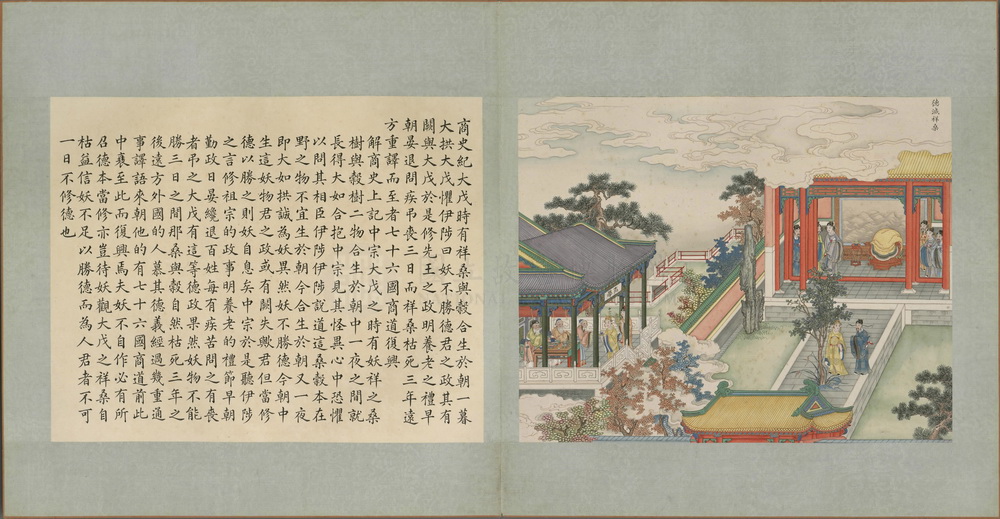 德滅祥桑
商史紀大戊時有祥桑與穀合生於朝一暮
大拱大戊懼伊陟曰妖不勝德君之政其有
闕與大戊於是修先王之政明養老之禮早
朝晏退問疾弔喪三日而祥桑枯死三年遠
方重譯而至者七十六國商道復興
解商史上記中宗大戊之時有妖祥之桑
樹與穀樹二物合生於朝中一夜之間就
長得大如合抱中宗見其怪異心中恐懼
以問其相臣伊陟伊陟說道這桑穀本在
野之物不宜生於朝今合生於朝又一夜
即大如拱誠為妖異然妖不勝德今朝中
生這妖物君之政或有闕失歟君但當修
德以勝之則妖自息矣中宗於是聽伊陟
之言修祖宗的政事明養老的禮節早朝
勤政日晏纔退百姓每有疾苦問之有喪
者弔之大戊有這等德政果然妖物不能
勝三日之間那桑與穀自然枯死三年之
後遠方外國的人慕其德義經過幾重通
事譯語來朝他的有七十六國商道前此
中衰至此而復興焉夫妖不自作必有所
召德本當修亦豈待妖觀大戊之祥桑自
枯益信妖不足以勝德而為人君者不可
一日不修德也